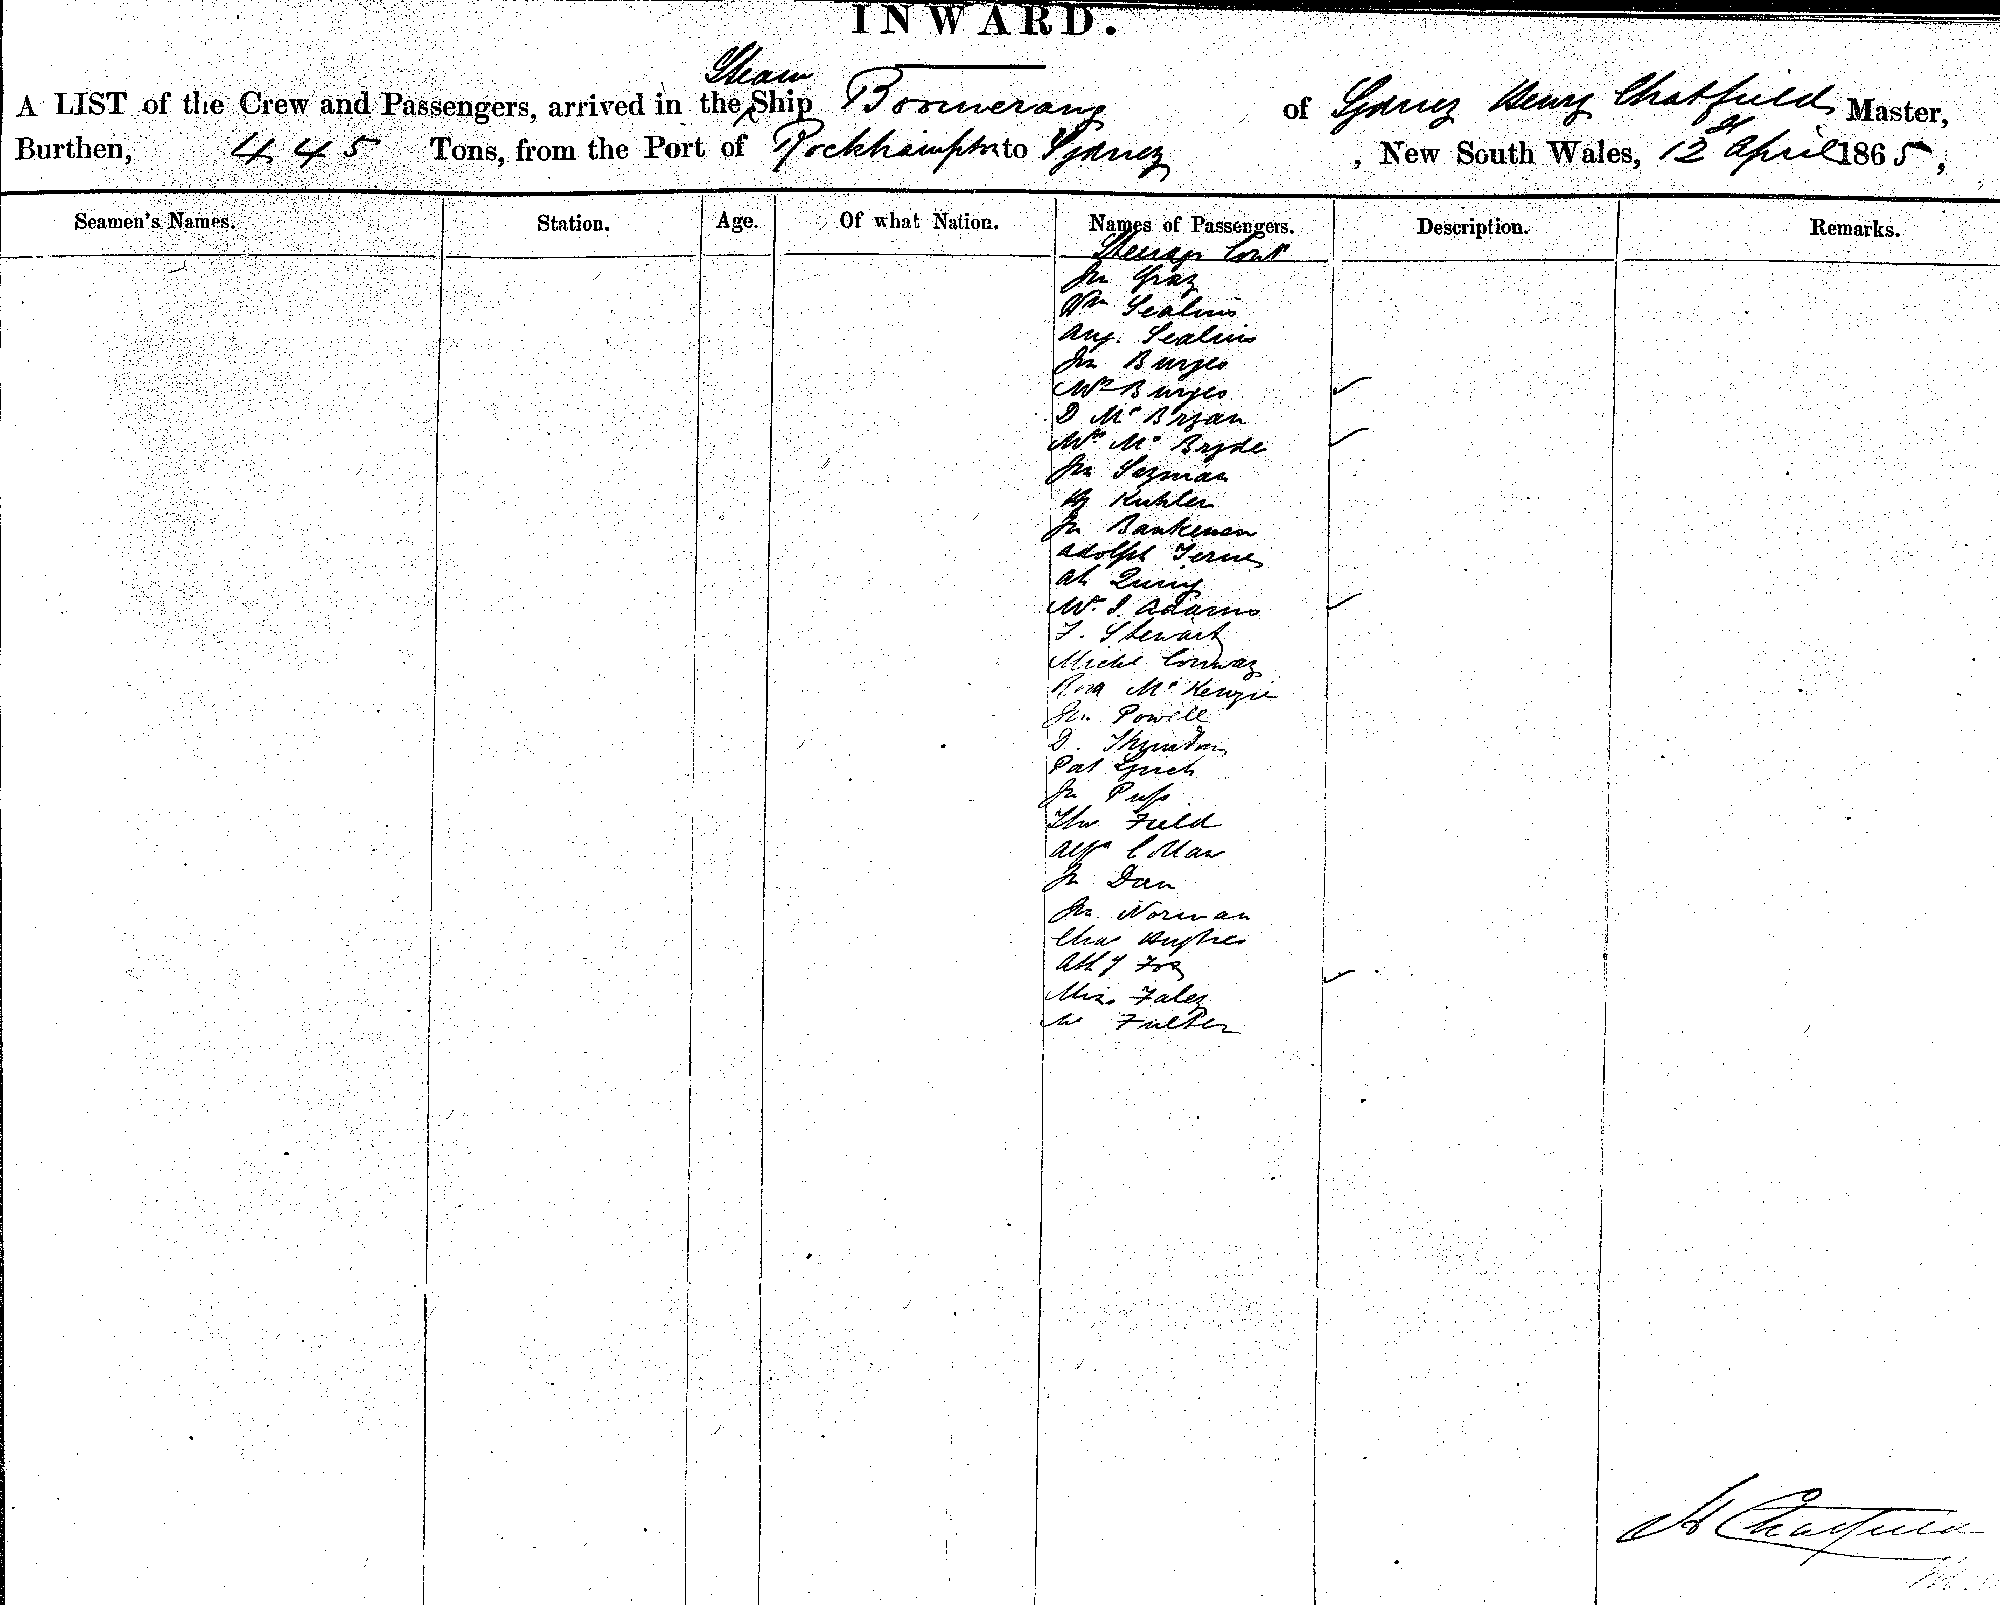 INWARD.
A LIST of the Crew and Passengers, arrived in the Steam Ship Boomerang of Sydney Henry Chatfield Master,
Burthen, 445 Tons, from the Port of Rockhampton to Sydney, New South Wales, 12 April 1865,
Seamen's Names. Station. Age. Of what Nation. Names of Passengers. Description. Remarks.
Steerage Cont
Jn Gray
Wm
Aug.
Jn Burges
Mrs Burges
D McBryan
Mrs McBryde
Jn
Hy Kuhler
Jn
Adolph
Ah
Mrs Adams
F. Stewart
Michl Conway
Rosa McKenzie
Jn Powell
D.
Pat Lynch
Jn
Thos Field
Jn
Jn Norman
Chas Hughes
Fox
Miss Foley
H Chatfield